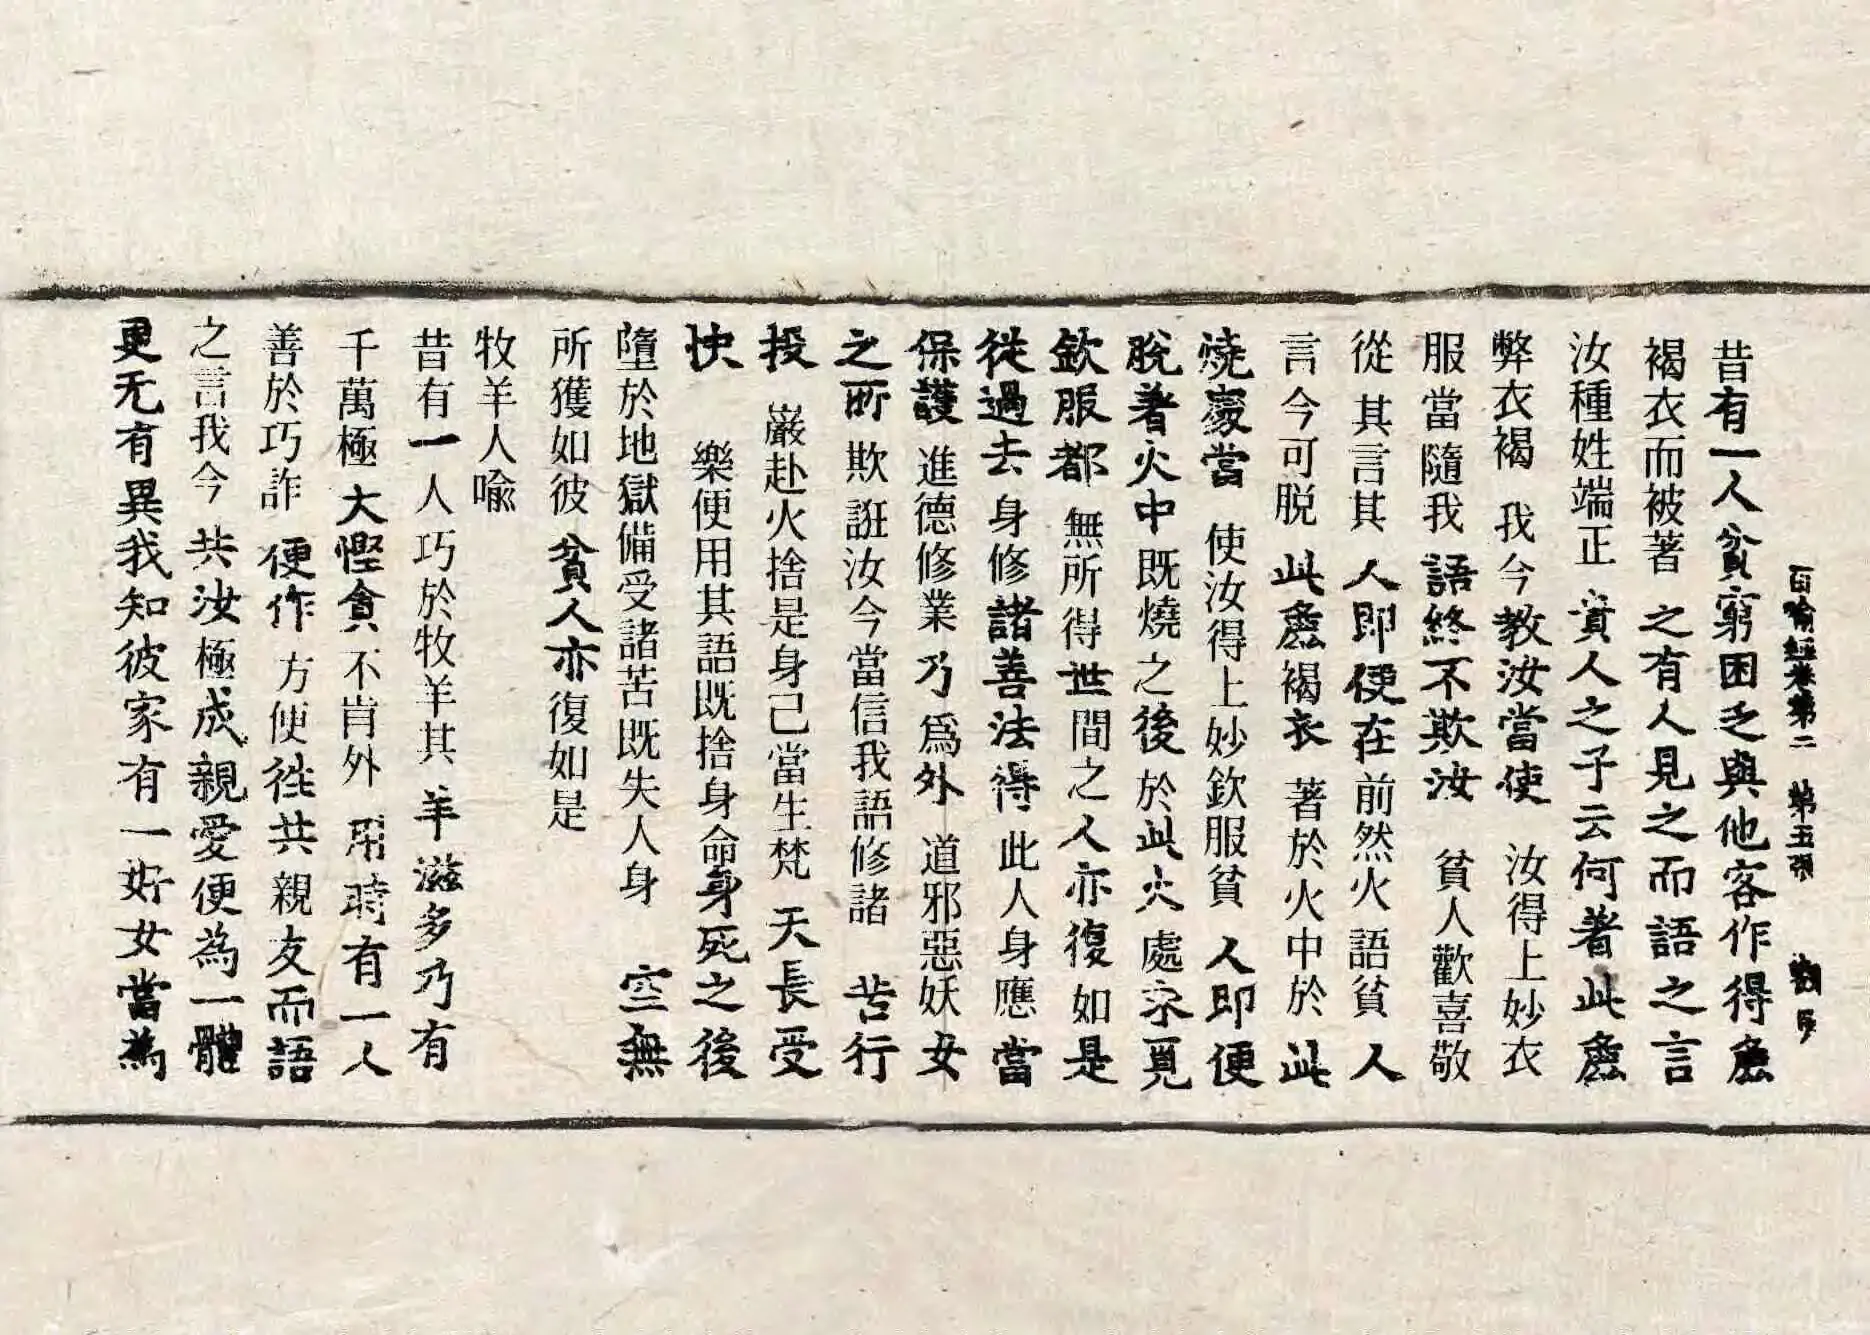 百喻經卷第二 第五張
昔有一人貧窮困乏與他客作得麁
褐衣而被著之有人見之而語之言
汝種姓端正貴人之子云何著此麁
弊衣褐我今教汝當使汝得上妙衣
服當隨我語終不欺汝貧人歡喜敬
從其言其人即便在前然火語貧人
言今可脱此麁褐衣著於火中於此
燒處當使汝得上妙欽服貧人即便
脫著火中既燒之後於此火處求覓
欽服都無所得世間之人亦復如是
從過去身修諸善法得此人身應當
保護進德修業乃爲外道邪惡妖女
之所欺誑汝今當信我語修諸苦行
投巖赴火捨是身己當生梵天長受
快樂便用其語既捨身命身死之後
墮於地獄備受諸苦既失人身空無
所獲如彼貧人亦復如是
牧羊人喻
昔有一人巧於牧羊其羊滋多乃有
千萬極大慳貪不肯外用時有一人
善於巧詐便作方便往共親友而語
之言我今共汝極成親愛便為一體
更无有異我知彼家有一好女當為